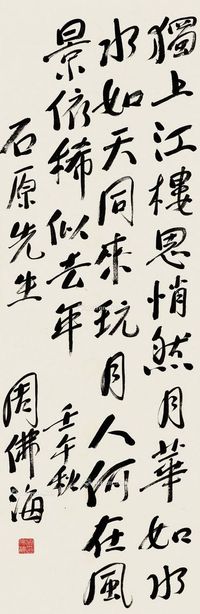 獨上江樓思悄然月華如水
水如天同來玩月人何在風
景依稀似去年
石原先生
壬午秋
周佛海